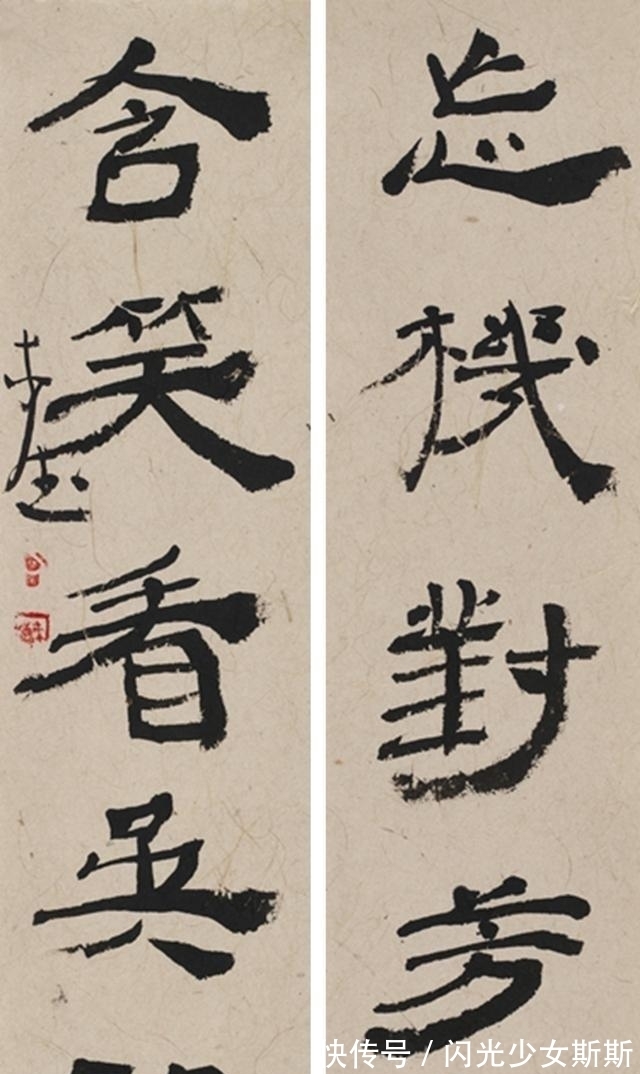 忘機對芳
含笑看吳
快传号 / 闪光少女斯斯